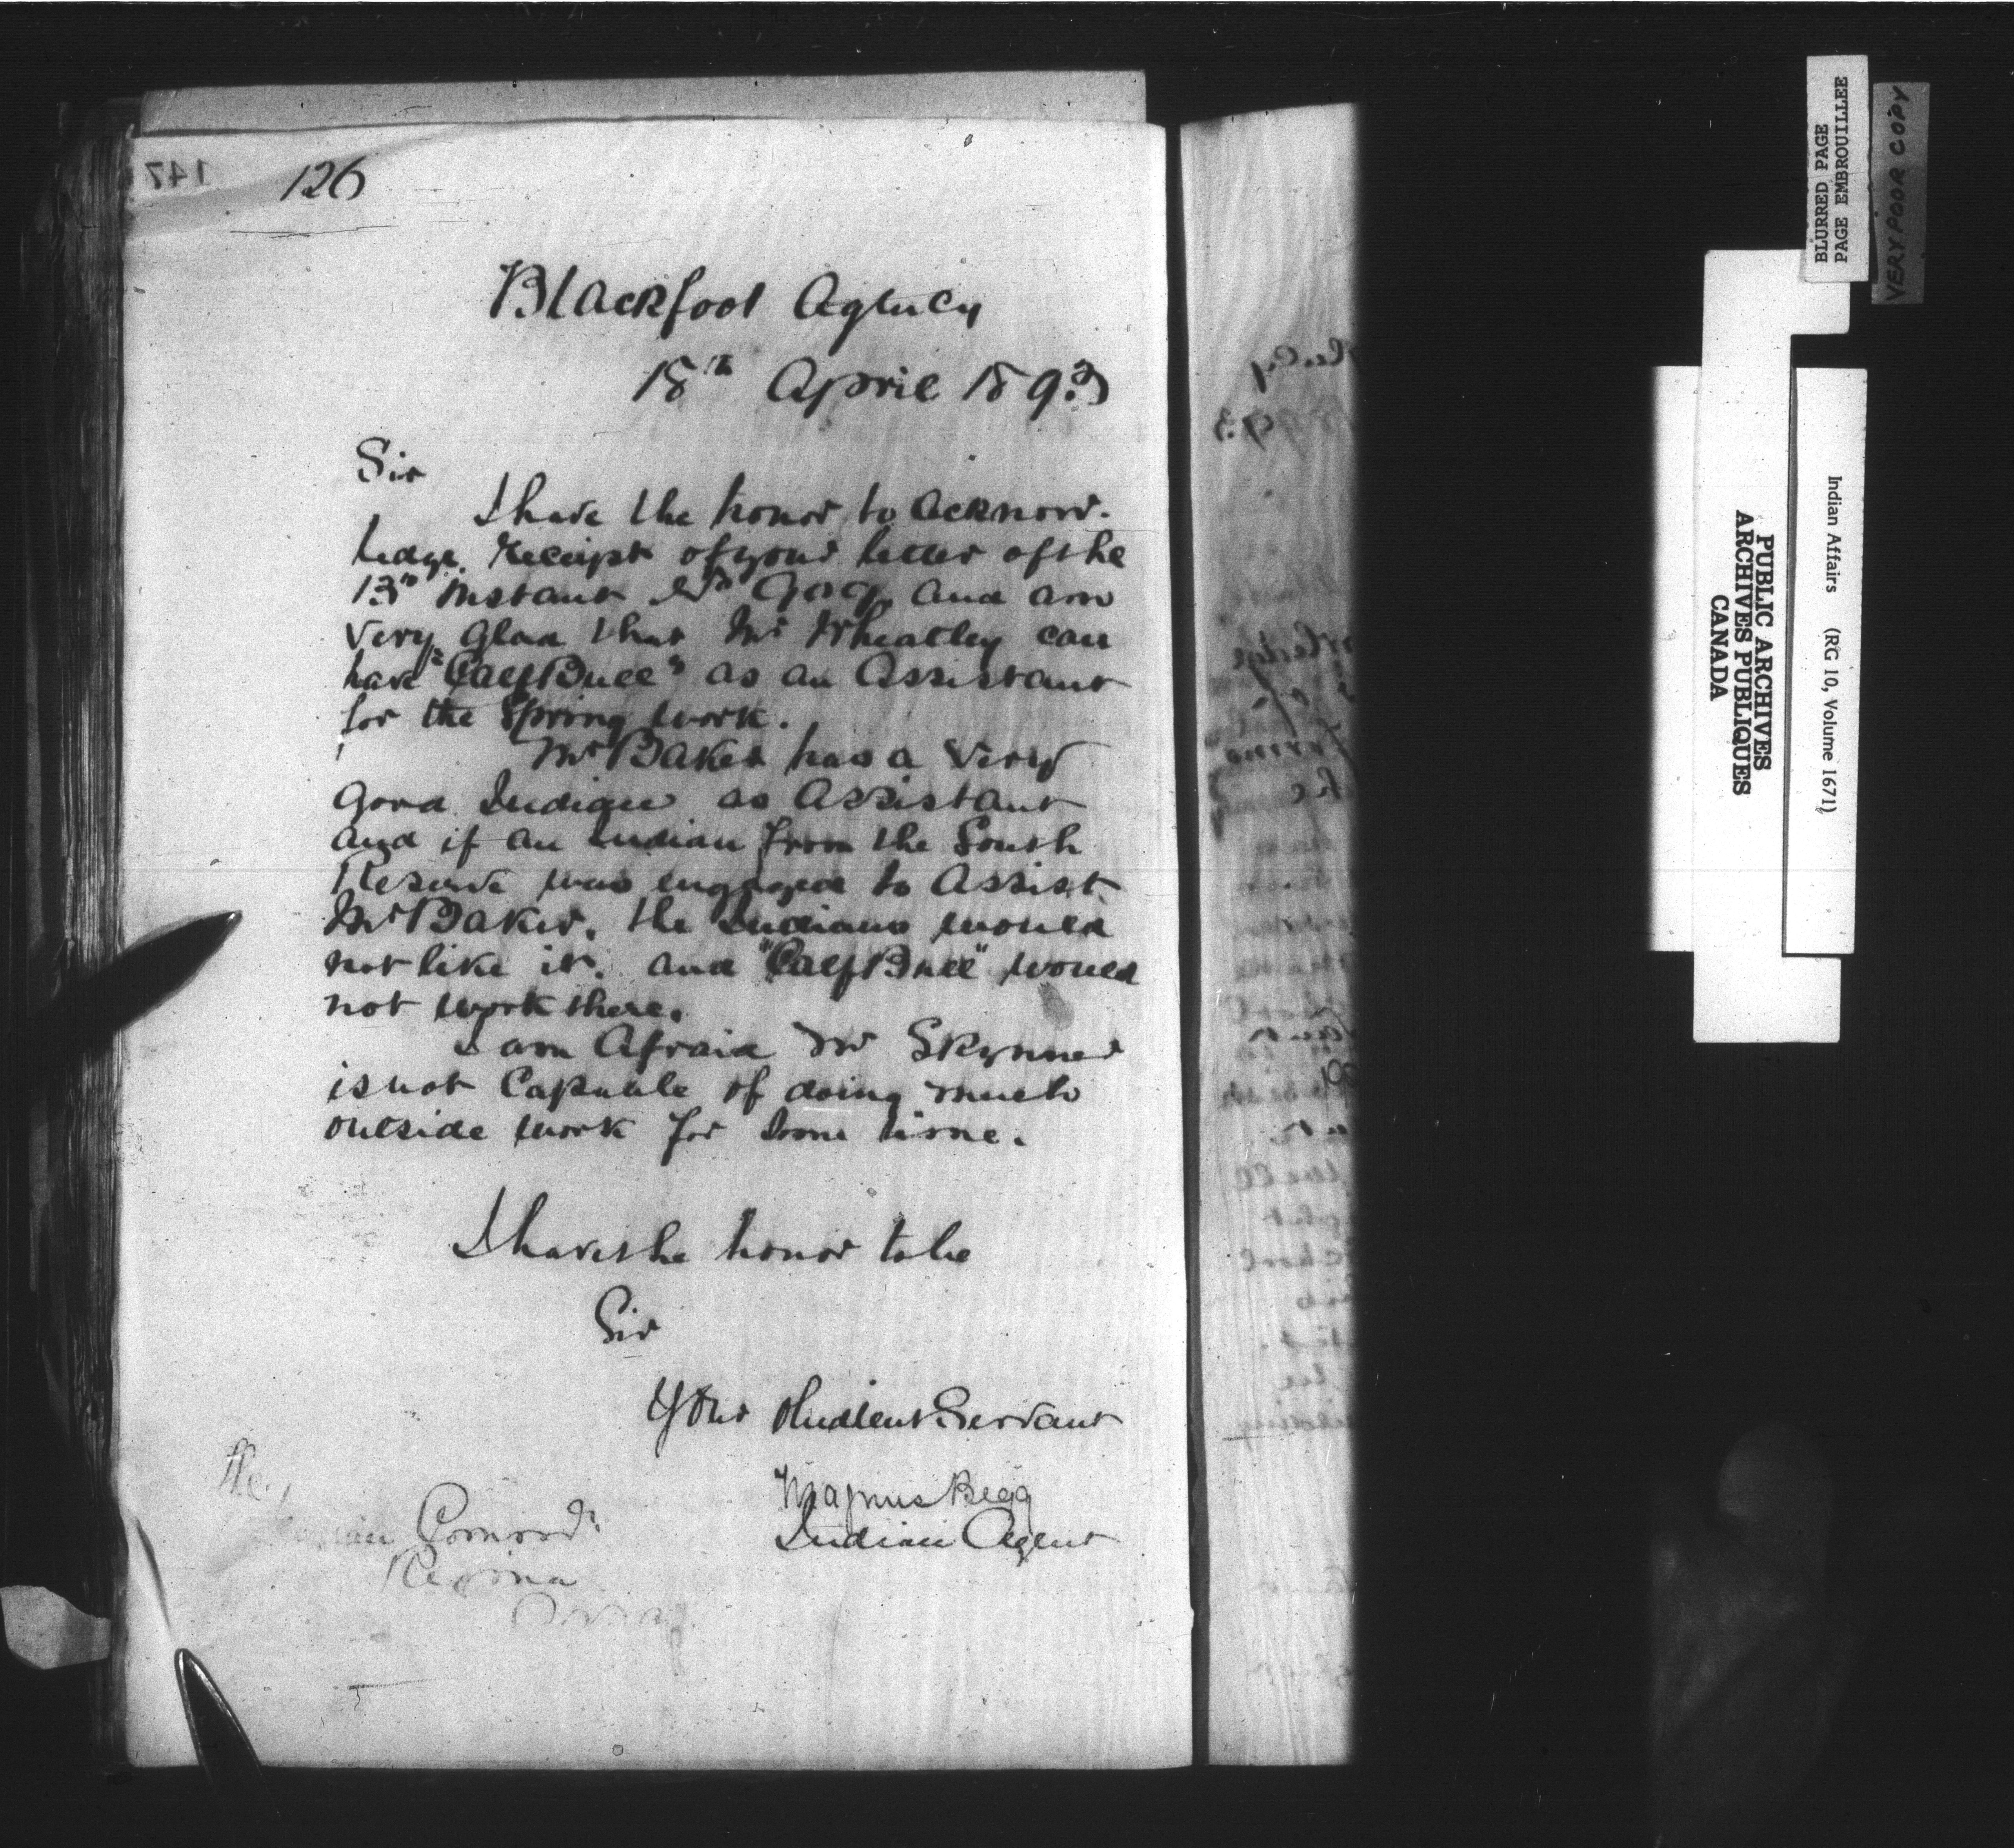 126
Blackfoot Agency
18th April 1893
Sir
I have the honor to acknow-
ledge receipt of your letter of the
13th Instant No and am
very glad that Mr Wheatley can
have "Calf Bull" as an Assistant
for the Spring work.
Mr Baker has a very
good Indian as Assistant
and if an Indian from the South
Reserve was engaged to Assist
Mr Baker, the Indians would
not like it, and "Calf Bull" would
not work there.
I am Afraid Mr Skynner
is not Capable of doing much
outside work for some time.
I have the honor to be
Sir
Your Obedient Servant
Magnus Begg
Indian Agent
The
Indian Commr
Regina
BLURRED PAGE
PAGE EMBROUILLEE
VERY POOR COPY
Indian Affairs (RG 10, Volume 1671)
PUBLIC ARCHIVES
ARCHIVES PUBLIQUES
CANADA